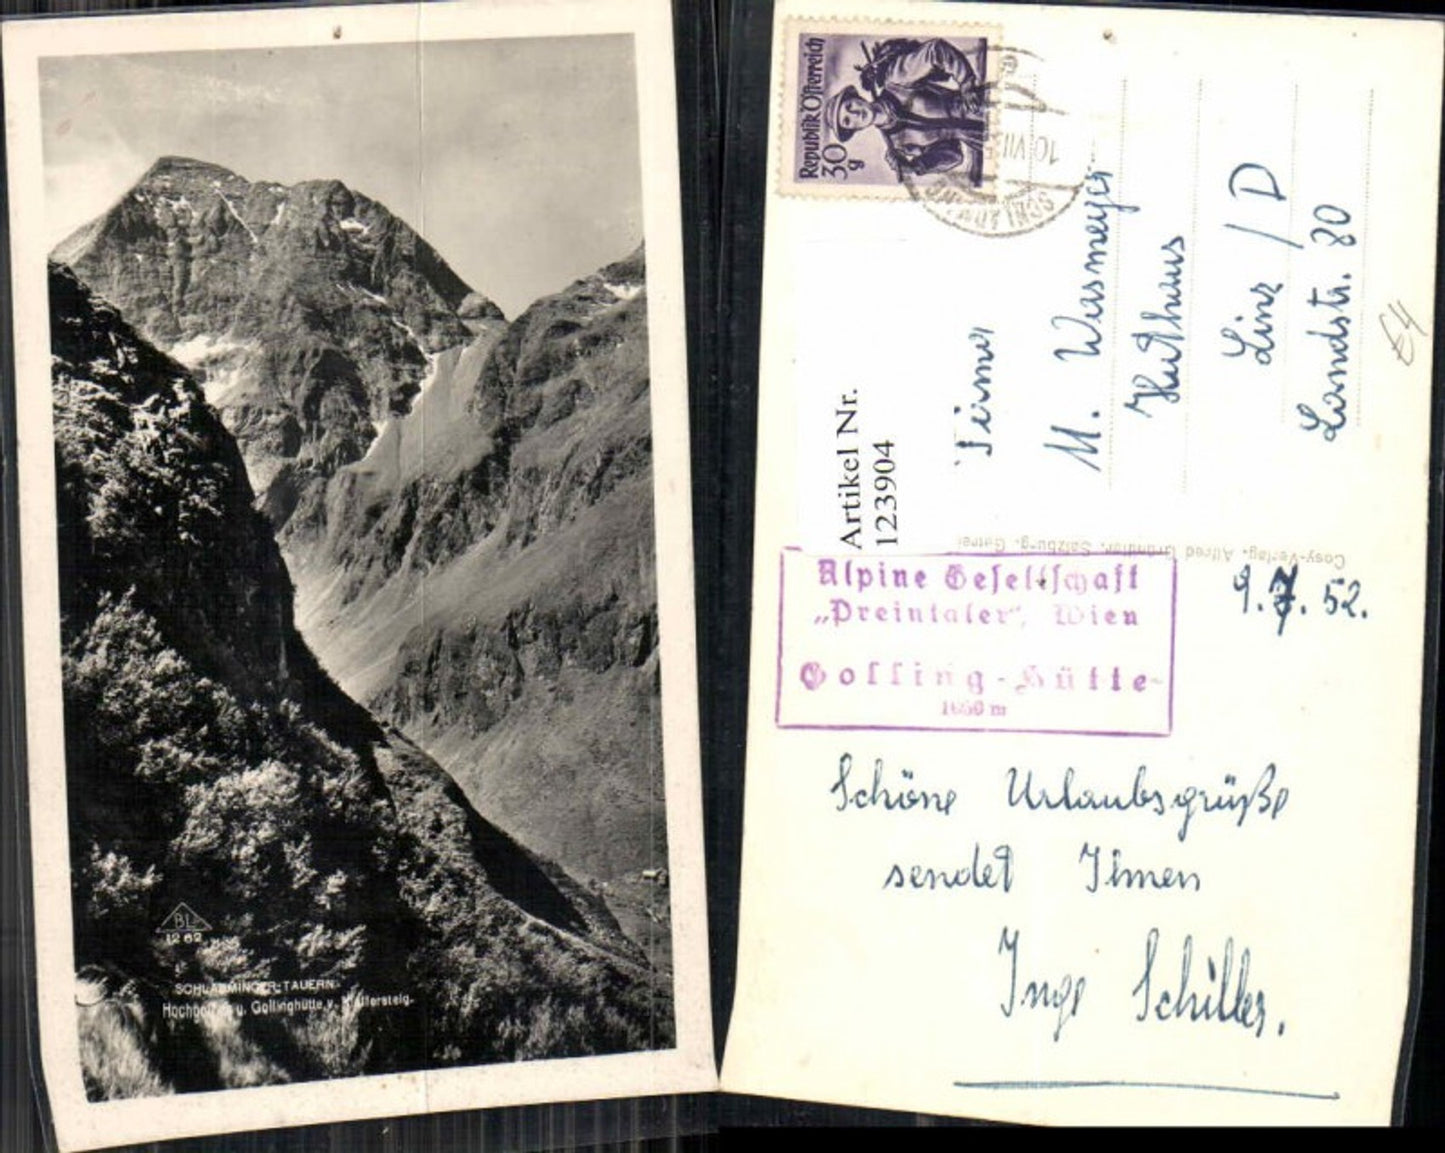 BL
1262
SCHLADMINGER-TAUERN.
Gollinghütte v.
Republik Österreich
30
g
10.VII
SCHLADMING
Artikel Nr.
123904
Firma
M. Wasmeyer
Huthaus
Linz / D
Landstr. 80
€4
Cosy-Verlag, Alfred Gründler, Salzburg, Getrei
9.7.52.
Alpine Gesellschaft
„Preintaler“, Wien
Golling-Hütte
m
Schöne Urlaubsgrüße
sendet Ihnen
Inge Schiller.